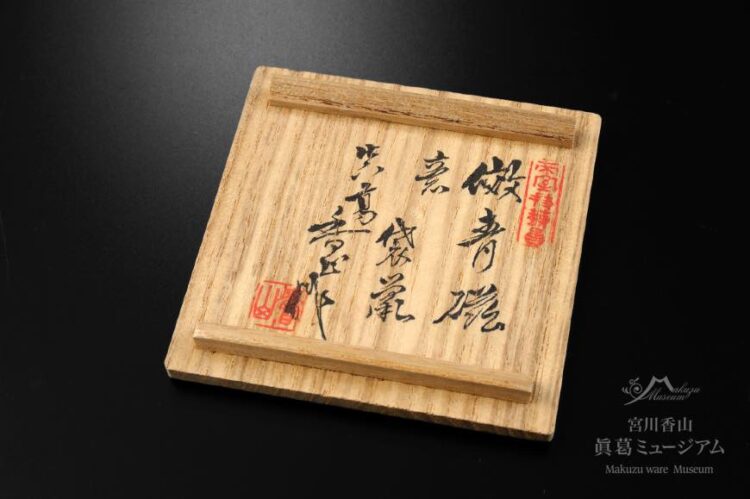 倣青磁
袋
真葛
香山作
帝室技藝員
Makuzu
Museum
宮川香山
眞葛ミュージアム
Makuzu ware Museum